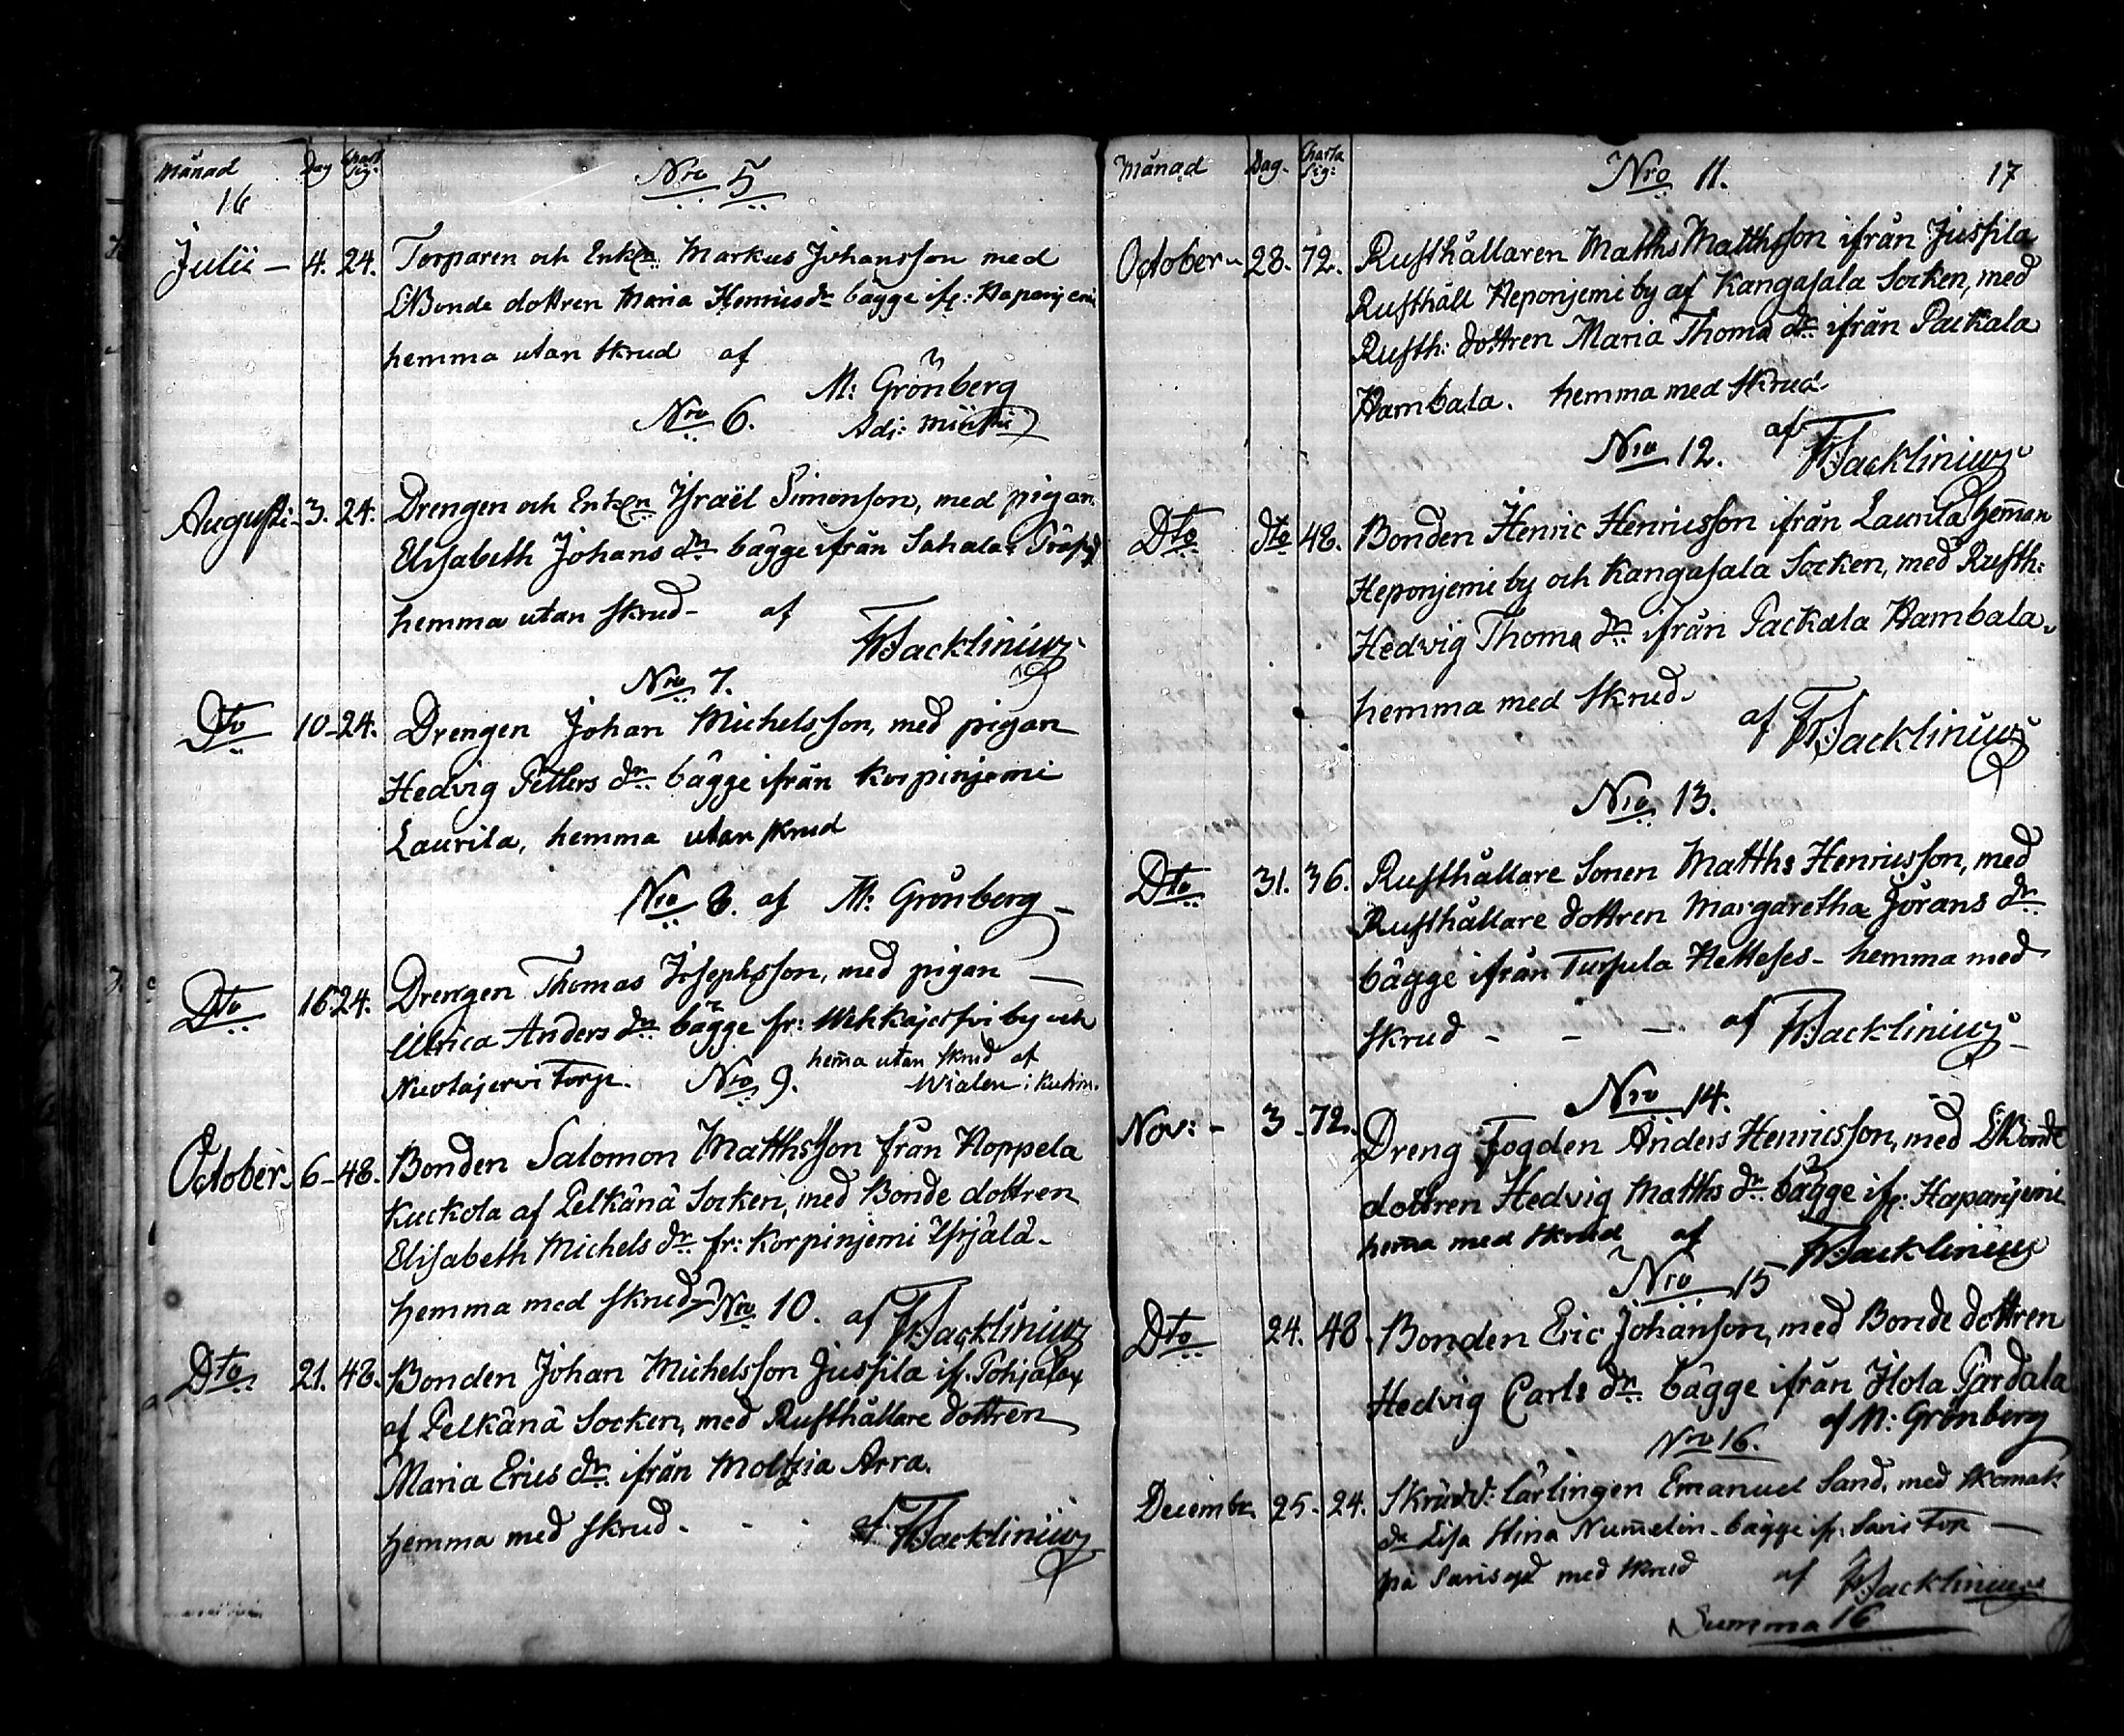 Månad Dag Charta Sig:
16
Nro 5
Julii – 4. 24. Torparen och Enkl. Markus Johansson med
Bonde dottren Maria Henrics dr bägge ifr: Haponjemi
hemma utan skrud af
M: Grönberg
Adj: Minist
Nro 6.
Augusti – 3. 24. Drengen och Enkl. Israël Simonson, med pigan
Elisabeth Johans dr bägge ifrån Sahalax
hemma utan skrud – af
Backlinius
Nro 7.
Dto 10 – 24. Drengen Johan Michelsson, med pigan
Hedvig Petters dr bägge ifrån Korpinjemi
Laurila, hemma utan skrud
Nro 8. af M: Grönberg –
Dto 16 24. Drengen Thomas Josephsson, med pigan –
Ulrica Anders dr bägge fr: Wehkajerfvi by och
Nuolajervi Torp. hem̄a utan skrud af
Nro 9.
October. 6 – 48. Bonden Salomon Matthsson från Hoppela
Kuckola af Pelkänä Socken, med Bonde dottren
Elisabeth Michels dr fr: Korpinjemi Yrjälä –
hemma med skrud – Nro 10. af Backlinius
Dto 21. 48. Bonden Johan Michelsson Jussila ifr. Pohjalax
af Pelkänä Socken, med Rusthållare dottren
Maria Erics dr ifrån Moltzia Arra.
hemma med skrud – - - af Backlinius
Månad Dag. Charta Sig:
Nro 11. 17
October – 28. 72. Rusthållaren Matths Matthsson ifrån Jussila
Rusthåll Heponjemi by af Kangasala Socken, med
Rusth: dottren Maria Thoma dr ifrån Packala
Hambala. hemma med skrud.
af Backlinius
Nro 12.
Dto dto 48. Bonden Henric Henricsson ifrån Laurila hem̄an
Heponjemi by och Kangasala Socken, med Rusth:
Hedvig Thoma dr ifrån Packala Hambala.
hemma med skrud.
af Backlinius
Nro 13.
Dto 31. 36. Rusthållare Sonen Matths Henricsson, med
Rusthållare dottren Margaretha Jörans dr
bägge ifrån Tursula Helleses – hemma med
skrud – – – af Backlinius
Nro 14.
Nov: – 3 – 72. Dreng Fogden Anders Henricsson, med Bonde
dottren Hedvig Matths dr bägge ifr: Haponjemi
hem̄a med skrud af Backlinius
Nro 15
Dto 24. 48. Bonden Eric Johanson, med Bonde dottren
Hedvig Carls dr bägge ifrån Ilola Pärdala
af M: Grönberg
Nro 16.
Decembr. 25 – 24. Skrädd: lärlingen Emanuel Sand, med Skomak:
dr Lisa Stina Num̄elin – bägge ifr. Saris Torp –
på Saris med skrud af Backlinius
Summa 16